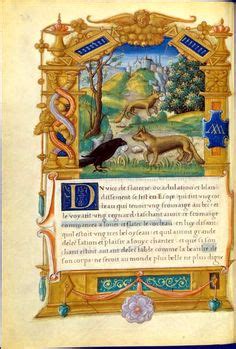 Du vice de flaterie ou adulation et blan
dissement se list en Esope qui dit q̃ung cor
beau qui tenoit ung fromaige au bec et
le voyant ung regnard taschant avoir ce fromaige
commança a louer et flater le corbeau en luy disant
quil estoit ung tres bel oyseau et quil avoit grande
delectation et plaisir a louyr chanter et que si son
chant estoit autant delectable comme la beaulte de
son corps ne seroit au monde plus belle ne plus digne